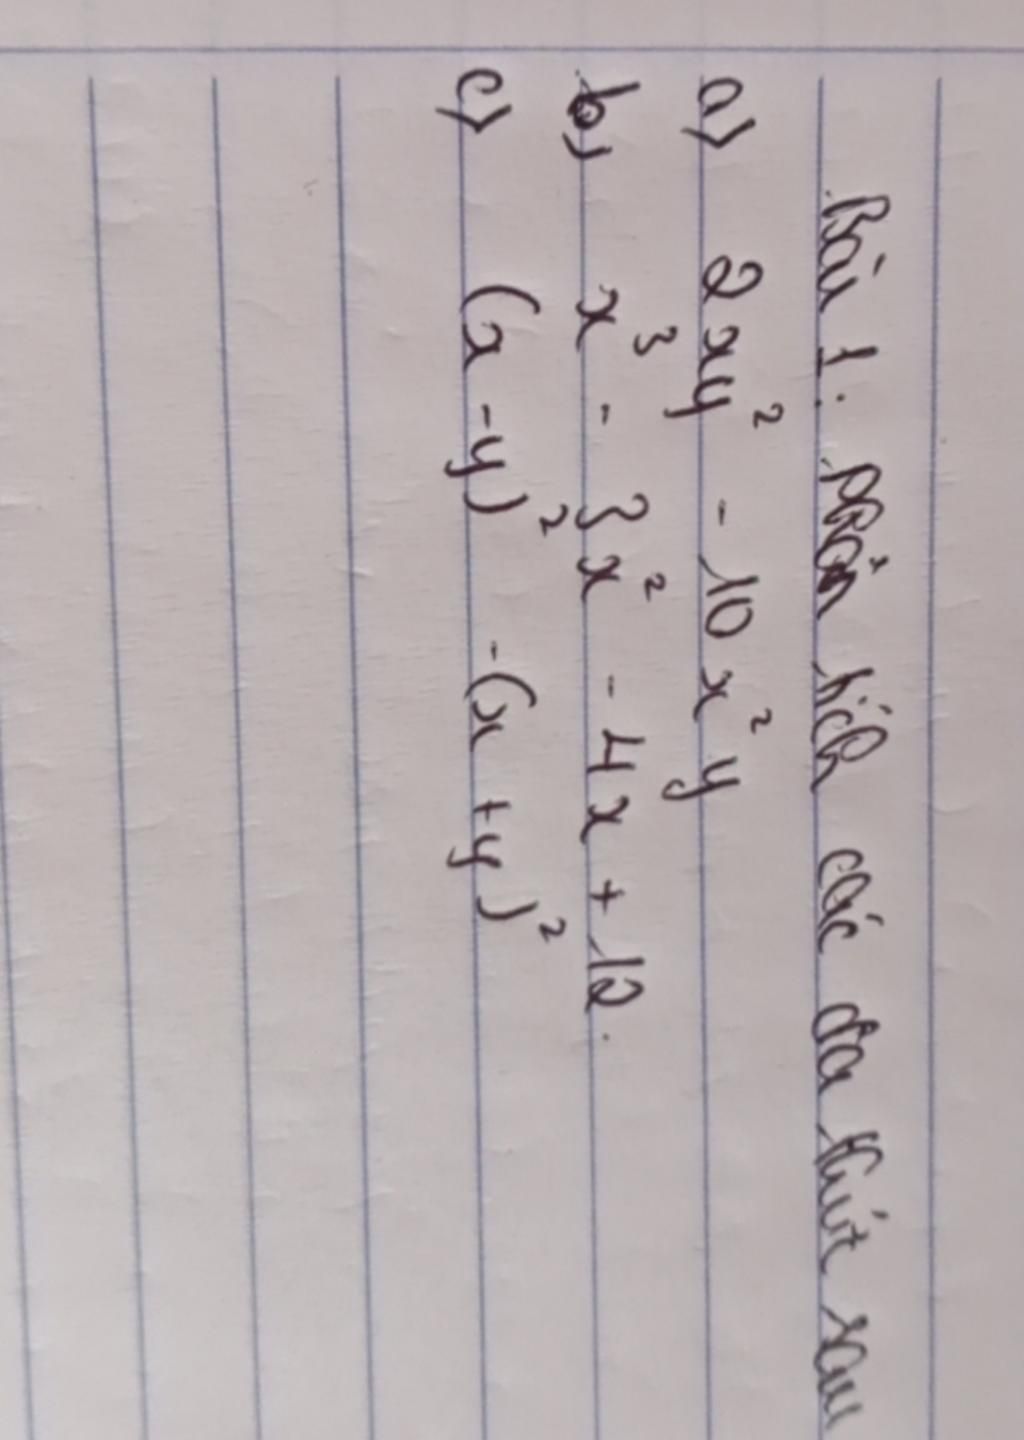 Bài 1: Phân tích các đa thức sau
a) 2xy² - 10x²y
b) x³ - 3x² - 4x + 12.
c) (x - y)² - (x + y)²